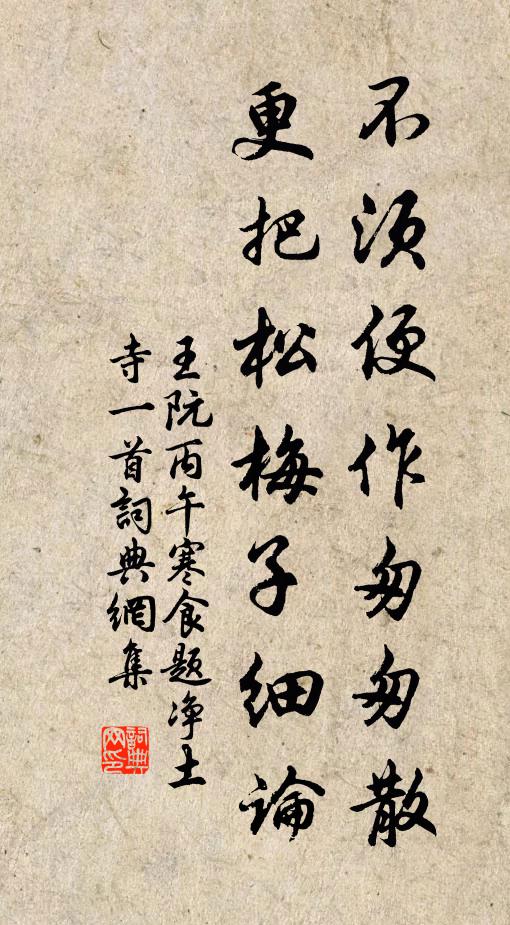 不須便作匆匆散
更把松梅子細論
王阮丙午寒食題净土
寺一首詞典網集
詞典
网印